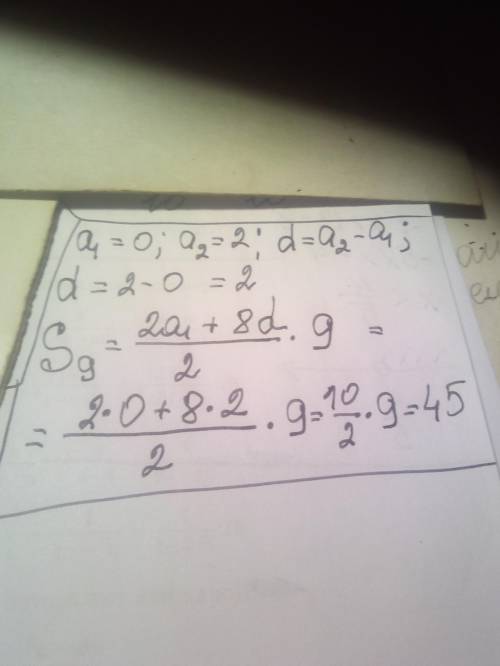 a₁ = 0; a₂ = 2; d = a₂ - a₁;
d = 2 - 0 = 2
S₉ = (2a₁ + 8d)/2 · 9 =
= (2·0 + 8·2)/2 · 9 = 10/2 · 9 = 45